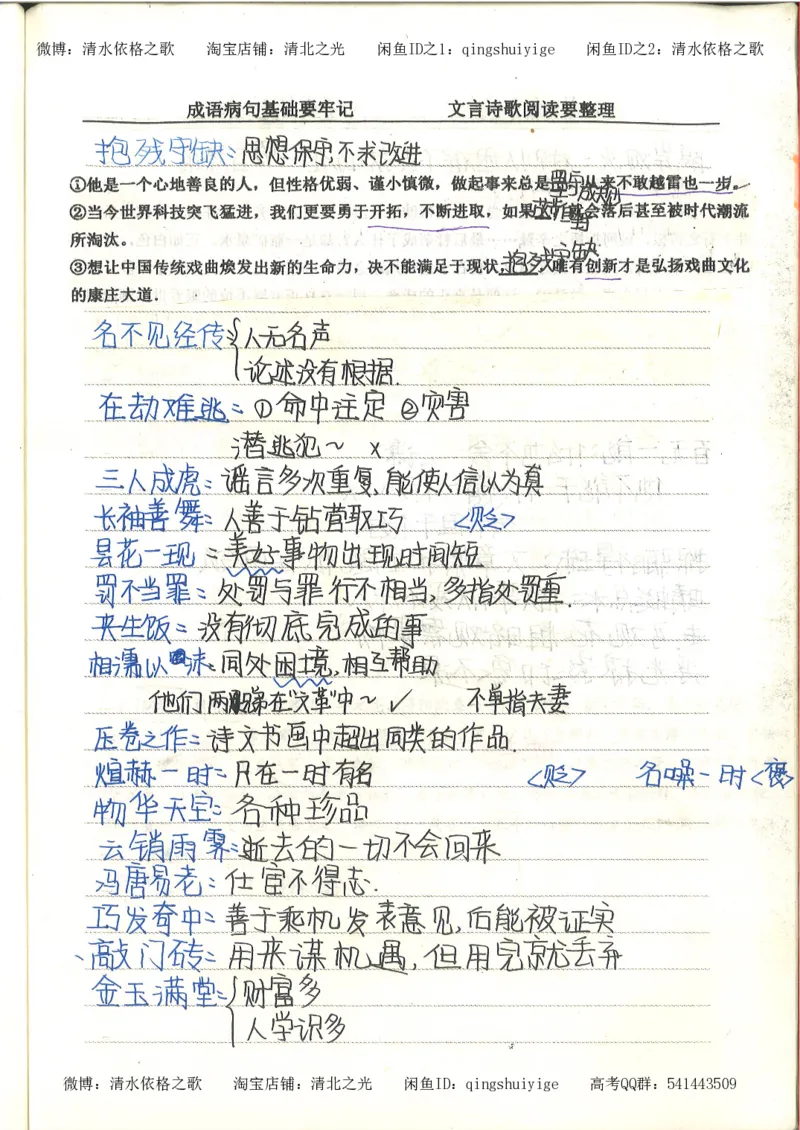 微博：清水依格之歌 淘宝店铺：清北之光 闲鱼ID之1：qingshuiyige 闲鱼ID之2：清水依格之歌
成语病句基础要牢记 文言诗歌阅读要整理
抱残守缺：思想保守,不求改进
①他是一个心地善良的人，但性格优弱、谨小慎微，做起事来总是 从来不敢越雷也一步。
②当今世界科技突飞猛进，我们更要勇于开拓，不断进取，如果 就会落后甚至被时代潮流
所淘汰。
③想让中国传统戏曲焕发出新的生命力，决不能满足于现状，抱残守缺，唯有创新才是弘扬戏曲文化
的康庄大道．
名不见经传：人无名声
论述没有根据.
在劫难逃：①命中注定 ②灾害
潜逃犯～ x
三人成虎：谣言多次重复,能使人信以为真
长袖善舞：人善于钻营取巧 <贬>
昙花一现：美好事物出现时间短
罚不当罪：处罚与罪行不相当,多指处罚重.
夹生饭：没有彻底完成的事
相濡以沫：同处困境,相互帮助
他们两 在"文革"中～ ✓ 不单指夫妻
压卷之作：诗文书画中超出同类的作品.
煊赫一时：只在一时有名 <贬> 名噪一时<褒>
物华天宝：各种珍品
云销雨霁：逝去的一切不会回来
冯唐易老：仕宦不得志.
巧发奇中：善于乘机发表意见,后能被证实
敲门砖：用来谋机遇,但用完就丢弃
金玉满堂：财富多
人学识多
微博：清水依格之歌 淘宝店铺：清北之光 闲鱼ID：qingshuiyige 高考QQ群：541443509